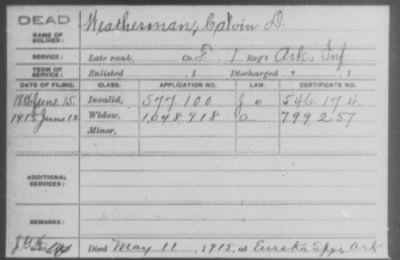 DEAD
NAME OF SOLDIER: Weatherman, Calvin D.
SERVICE: Late rank, Co. F, 1 Reg't Ark. Inf
TERM OF SERVICE: Enlisted , 1 Discharged , 1
DATE OF FILING. CLASS. APPLICATION NO. LAW. CERTIFICATE NO.
June 15. Invalid, 577,100 546,174
1915 June 12 Widow, 1,048,918 a 799,257
Minor,
ADDITIONAL SERVICES:
REMARKS:
Died May 11, 1915, at Eureka Spgs, Ark